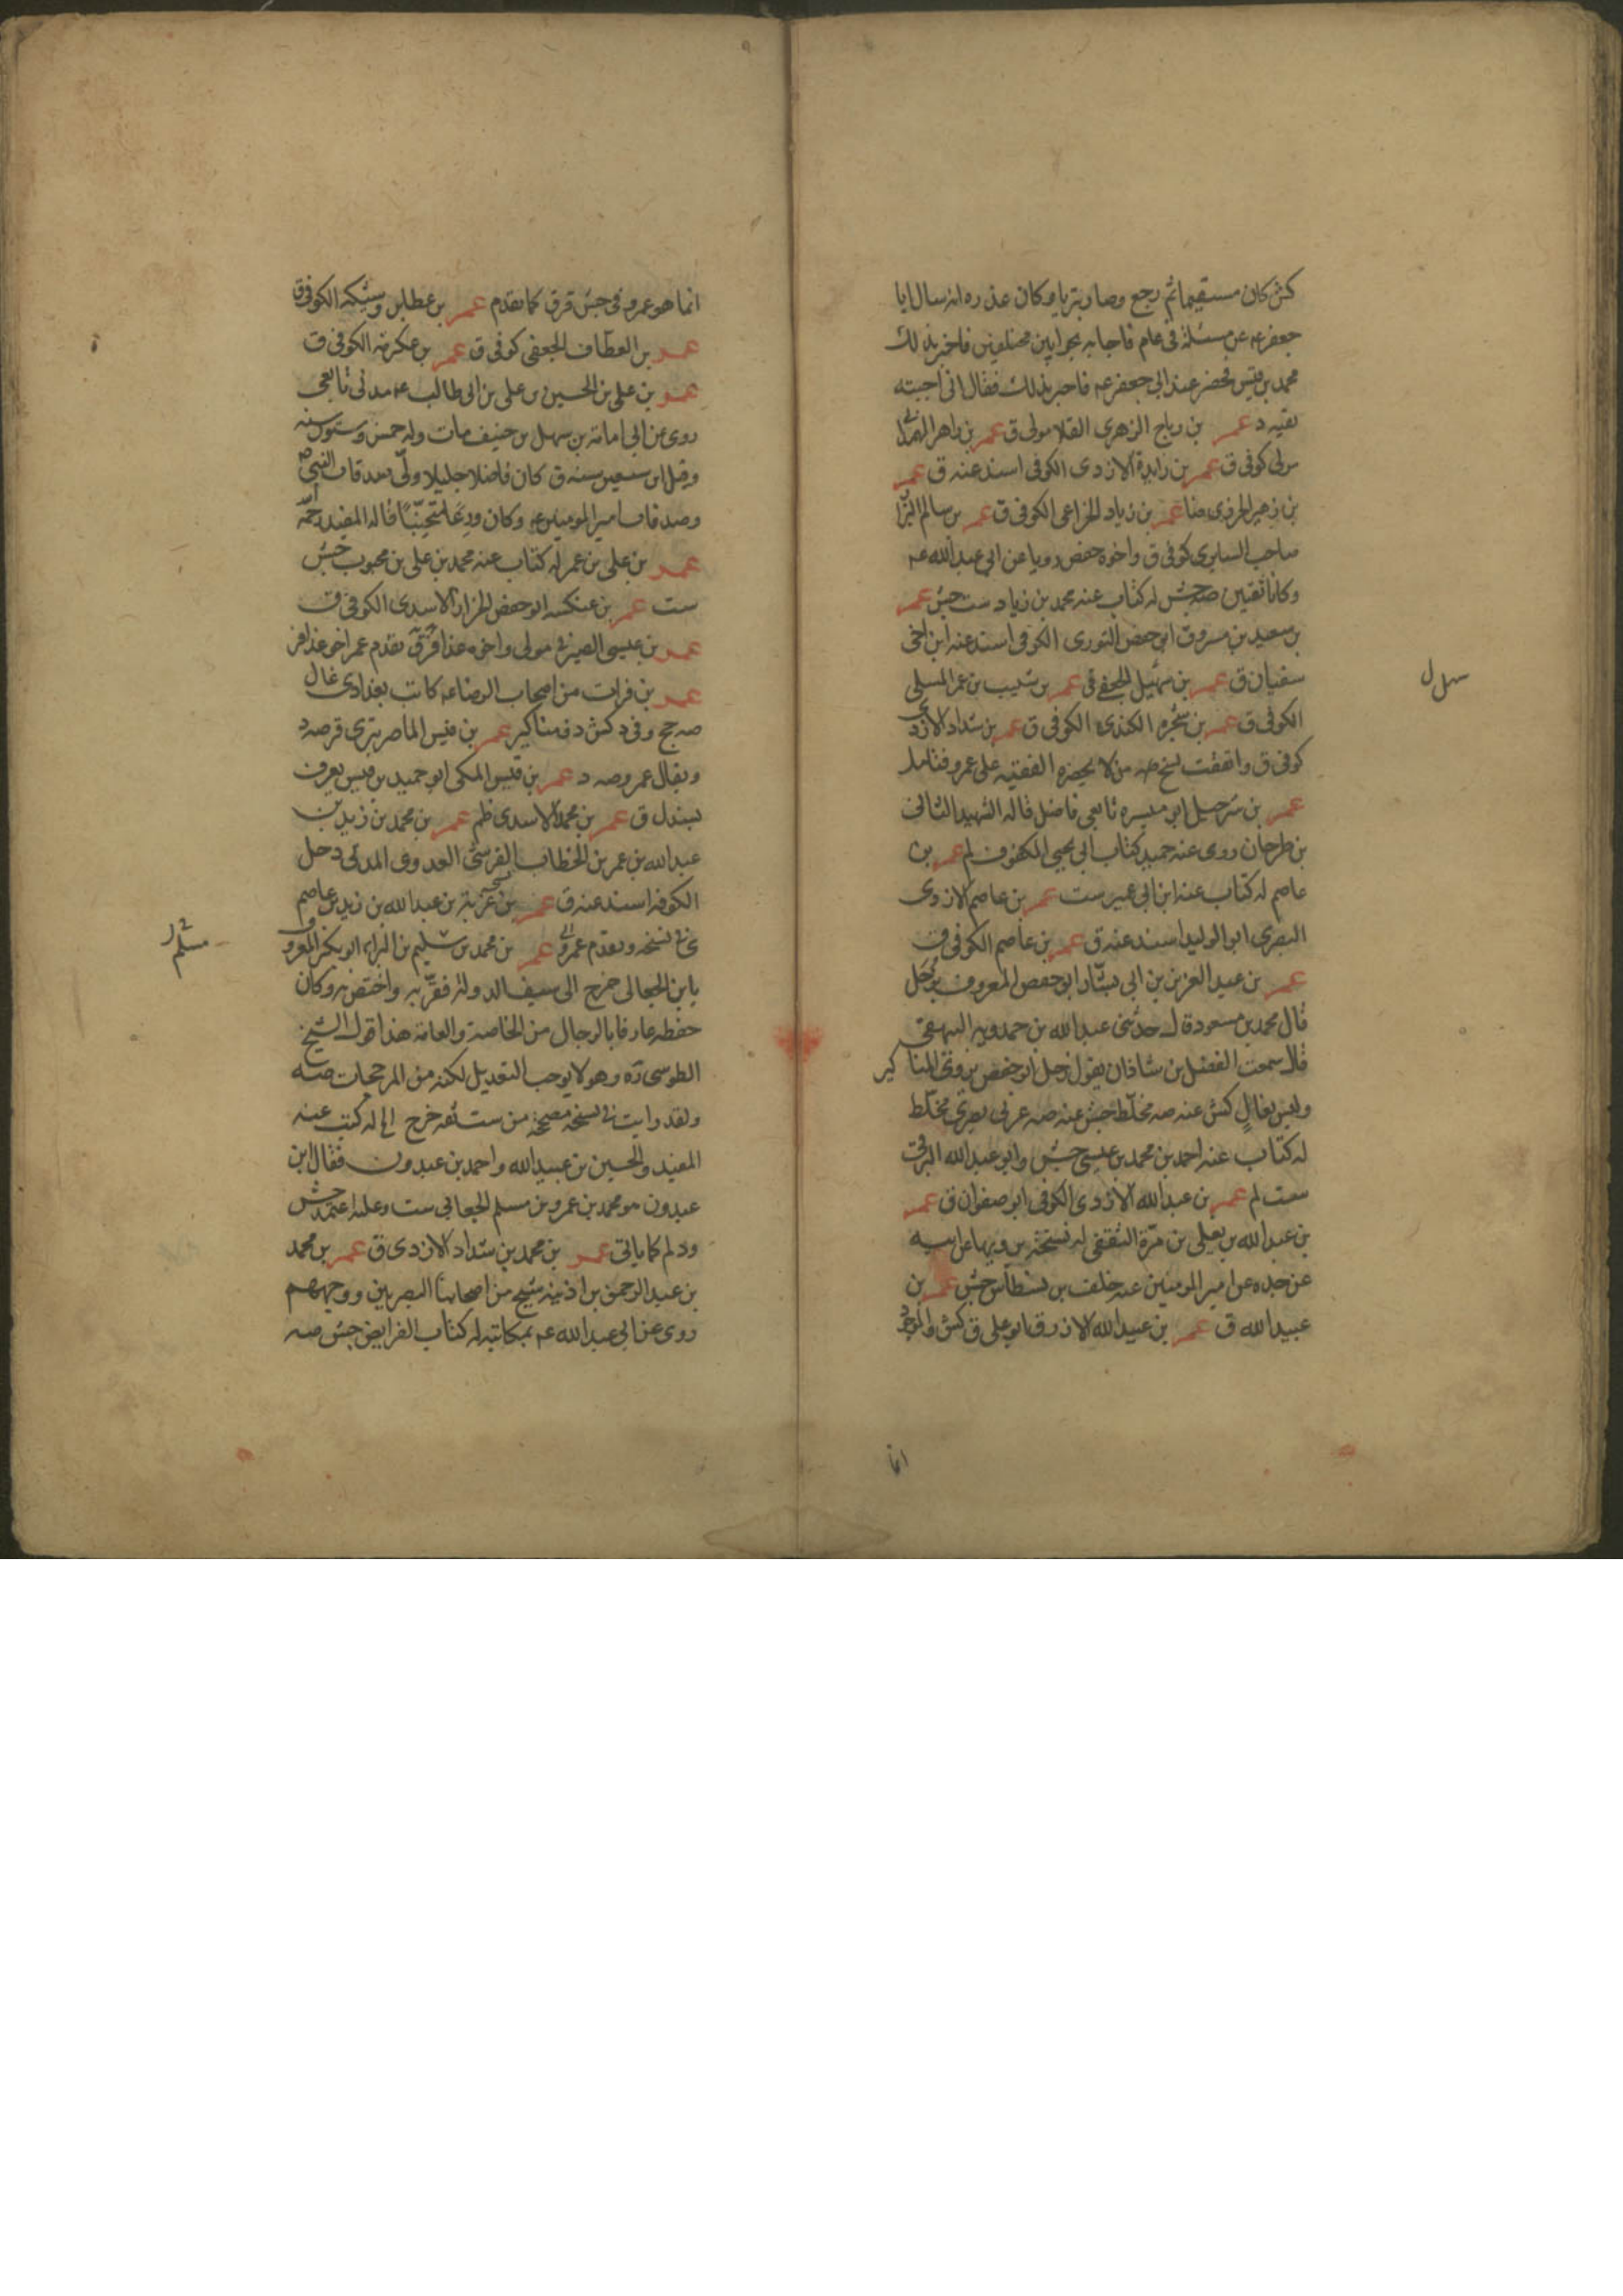 كش كان مستقيما ثم رجع وصار بتريا وكان عذره انه سال ابا
جعفر عم عن مسئلة في عام فاجابه بجوابين مختلفين فاخبر بذلك
محمد بن قيس فحضر عند ابي جعفر عم فاخبر بذلك فقال اني اجبته
تقيه د عمر بن رياح الزهري القلا مولى ق عمر بن زاهر الهمداني
مولى كوفى ق عمر بن زايدة الازدى الكوفى اسند عنه ق عمر
بن زهير الجزرى عمر بن زياد الخزاعى الكوفى ق عمر بن سالم البزا
صاحب السابرى كوفى ق واخوه حفص رويا عن ابي عبد الله عم
وكانا ثقتين صه جش له كتاب عنه محمد بن زياد ست جش عمر
بن سعيد بن مسروق ابو حفص الثورى الكوفى اسند عنه ابن اخى
سفيان ق عمر بن سهيل ق عمر بن شبيب بن عمر المسلى
الكوفى ق عمر بن شجره الكندى الكوفى ق عمر بن شداد الازدى
كوفى ق واتفقت نسخ من لا يحضره الفقيه على عمرو فتامل
عمر بن شرحبيل ابو ميسره تابعي فاضل قاله الشهيد الثانى
بن طرخان روى عنه حميد كتاب ابي يحيى المكفوف لم عمر بن
عاصم له كتاب عنه ابن ابي عمير ست عمر بن عاصم الازدى
البصرى ابو الوليد اسند عنه ق عمر بن عاصم الكوفى ق
عمر بن عبد العزيز بن ابي بشار ابو حفص المعروف بزحل
قال محمد بن مسعود قال حدثنى عبد الله بن حمدويه البيهقى
قال سمعت الفضل بن شاذان يقول زحل ابو حفص يروى المناكير
وليس بغالٍ كش عنه صه مخلّط جش عنه صه عربى بصرى مخلّط
له كتاب عنه احمد بن محمد بن عيسى جش وابو عبد الله البرقى
ست لم عمر بن عبد الله الازدى الكوفى ابو صفوان ق عمر
بن عبد الله بن يعلى بن مرّة الثقفى له نسخة يرويها عن ابيه
عن جده عن امير المومنين عنه خلف بن بسطاس جش عمر بن
عبيد الله ق عمر بن عبيد الله الازرق ابو على ق كش والموجود
انما
سهل ل
انما هو عمرو فى جش قرق كما تقدم عمر بن عطا بن وشيكه الكوفى ق
عمر بن العطّاف الجعفى كوفى ق عمر بن عكرمه الكوفى ق
عمر بن على بن الحسين بن على بن ابى طالب عم مدنى تابعى
روى عن ابى امامة بن سهل بن حنيف مات وله خمس وستون سنه
وقيل ابن سبعين سنه ق كان فاضلا جليلا ولّى صدقات النبى ص
وصدقات امير المومنين عم وكان ورعا متجنّبا قاله المفيد رحمه
عمر بن على بن عمر له كتاب عنه محمد بن على بن محبوب جش
ست عمر بن عنكسه ابو حفص الخزاز الاسدى الكوفى ق
عمر بن عيسى الصيرفى مولى واخوه عذافر ق ق تقدم عمر اخو عذافر
عمر بن فرات من اصحاب الرضا عم كاتب بغدادى غال
صه جخ وفى د كش ذو مناكير عمر بن قيس الماصر بترى قر صه د
ويقال عمرو صه د عمر بن قيس المكى ابو حميد بن قيس يعرف
بسندل ق عمر بن محمد الاسدى ظم عمر بن محمد بن زيد بن
عبد الله بن عمر بن الخطاب القرشى العدوى المدنى دخل
الكوفه اسند عنه ق عمر بن غزية بن عبد الله بن زيد بن عاصم
ى فى نسخه وتقدم عمرو عمر بن محمد بن سليم بن البراء ابو بكر المعروف
بابن الجعابى خرج الى سيف الدولة فقرّبه واختص به وكان
حفظه عارفا بالرجال من الخاصة والعامة هذا قول الشيخ
الطوسى ره وهو لا يوجب التعديل لكنه من المرجحات صه
ولقد رايت فى نسخه مصححه من ست ثقه خرج الى له كتب عنه
المفيد والحسين بن عبيد الله واحمد بن عبدون فقال ابن
عبدون هو محمد بن عمرو بن مسلم الجعابى ست وعليه اعتمد جش
ود لم كما ياتى عمر بن محمد بن شداد الازدى ق عمر بن محمد
بن عبد الرحمن بن اذينه شيخ من اصحابنا البصريين ووجههم
روى عن ابى عبد الله عم بمكاتبه له كتاب الفرايض جش صه
مسلم